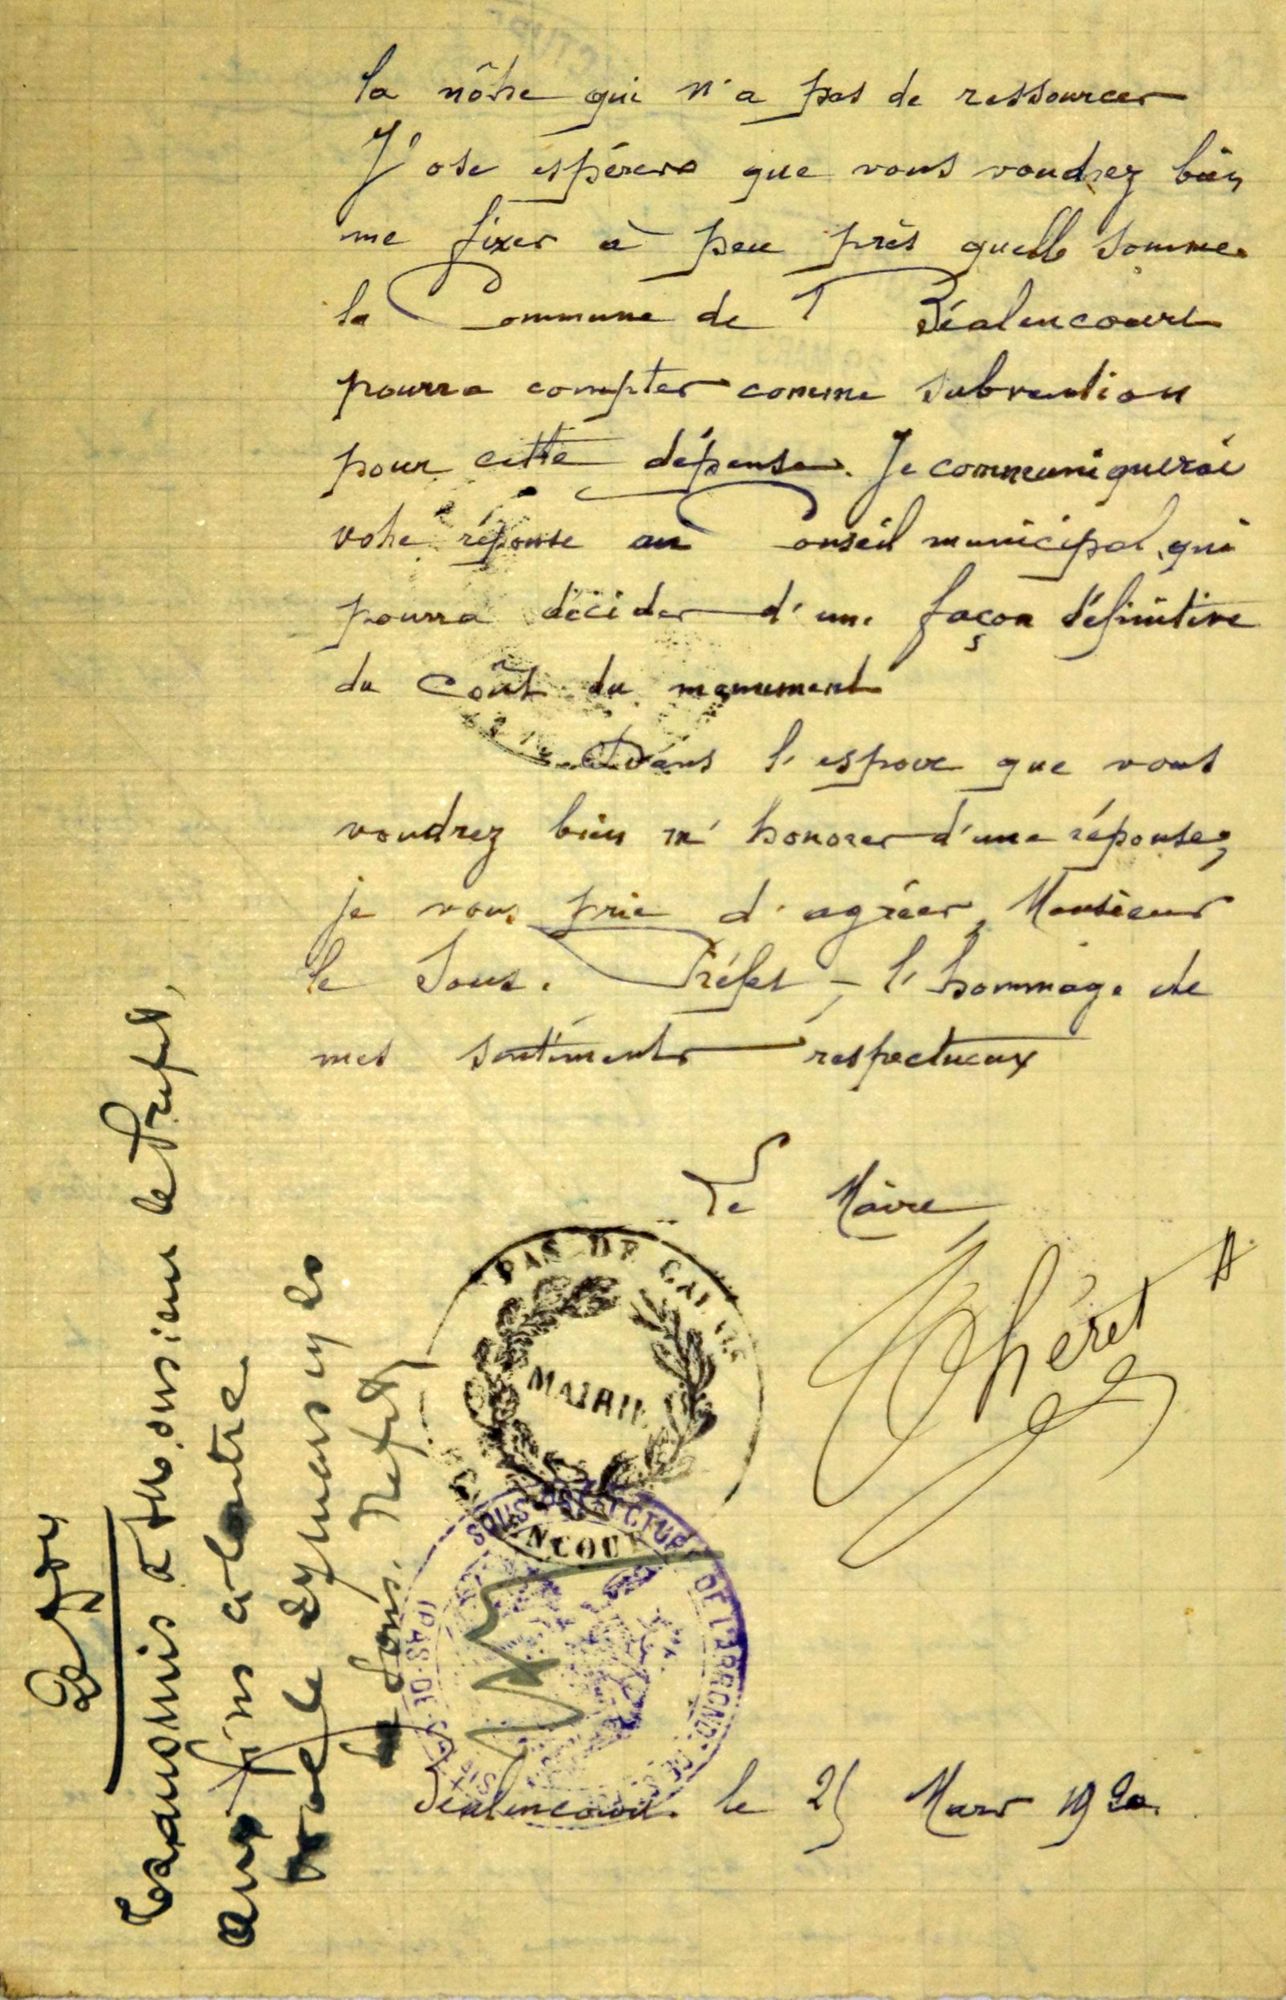 la nôtre qui n'a pas de ressources
J'ose espérer que vous voudrez bien
me fixer à peu près quelle somme
la Commune de Béalencourt
pourra compter comme subvention
pour cette dépense. Je communiquerai
votre réponse au Conseil municipal qui
pourra décider d'une façon définitive
du coût du monument
Dans l'espoir que vous
voudrez bien m'honorer d'une réponse,
je vous prie d'agréer, Monsieur
le Sous-Préfet, l'hommage de
mes sentiments respectueux
Le Maire,
Théret A
PAS DE CALAIS
MAIRIE
NCOU
SOUS-PRÉFECTURE DE L'ARROND
(PAS-DE-C
Béalencourt le 25 Mars 1920.
Transmis à Monsieur le Préfet,
aux fins
le Sous-Préfet,